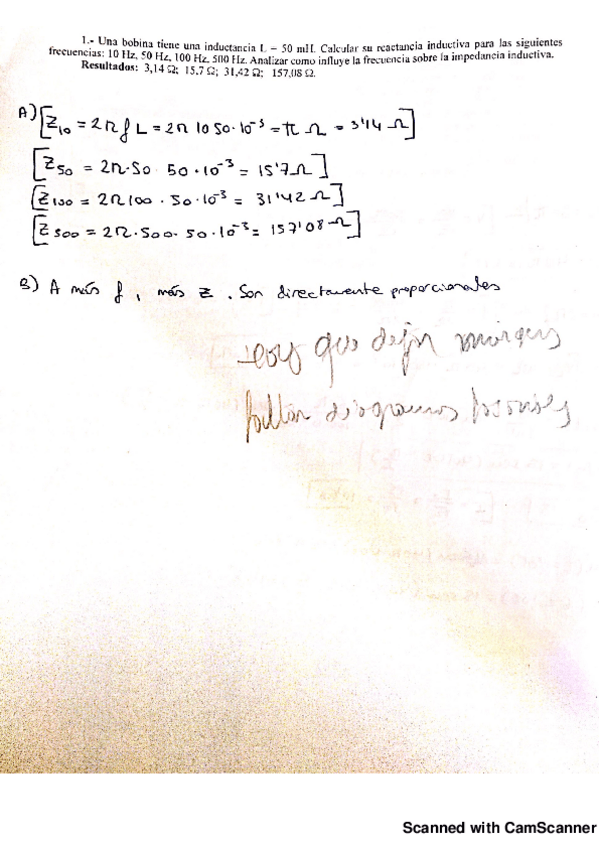 1.- Una bobina tiene una inductancia L = 50 mH. Calcular su reactancia inductiva para las siguientes
frecuencias: 10 Hz, 50 Hz, 100 Hz, 500 Hz. Analizar como influye la frecuencia sobre la impedancia inductiva.
Resultados: 3,14 Ω; 15,7 Ω; 31,42 Ω; 157,08 Ω.
A) [Z10 = 2π f L = 2π 10 50·10⁻³ = π Ω = 3'14 Ω]
[Z50 = 2π·50 50·10⁻³ = 15'7 Ω]
[Z100 = 2π 100 · 50·10⁻³ = 31'42 Ω]
[Z500 = 2π·500· 50·10⁻³ = 157'08 Ω]
B) A más f, más Z. Son directamente proporcionales
que dejar
faltan diagramas
Scanned with CamScanner